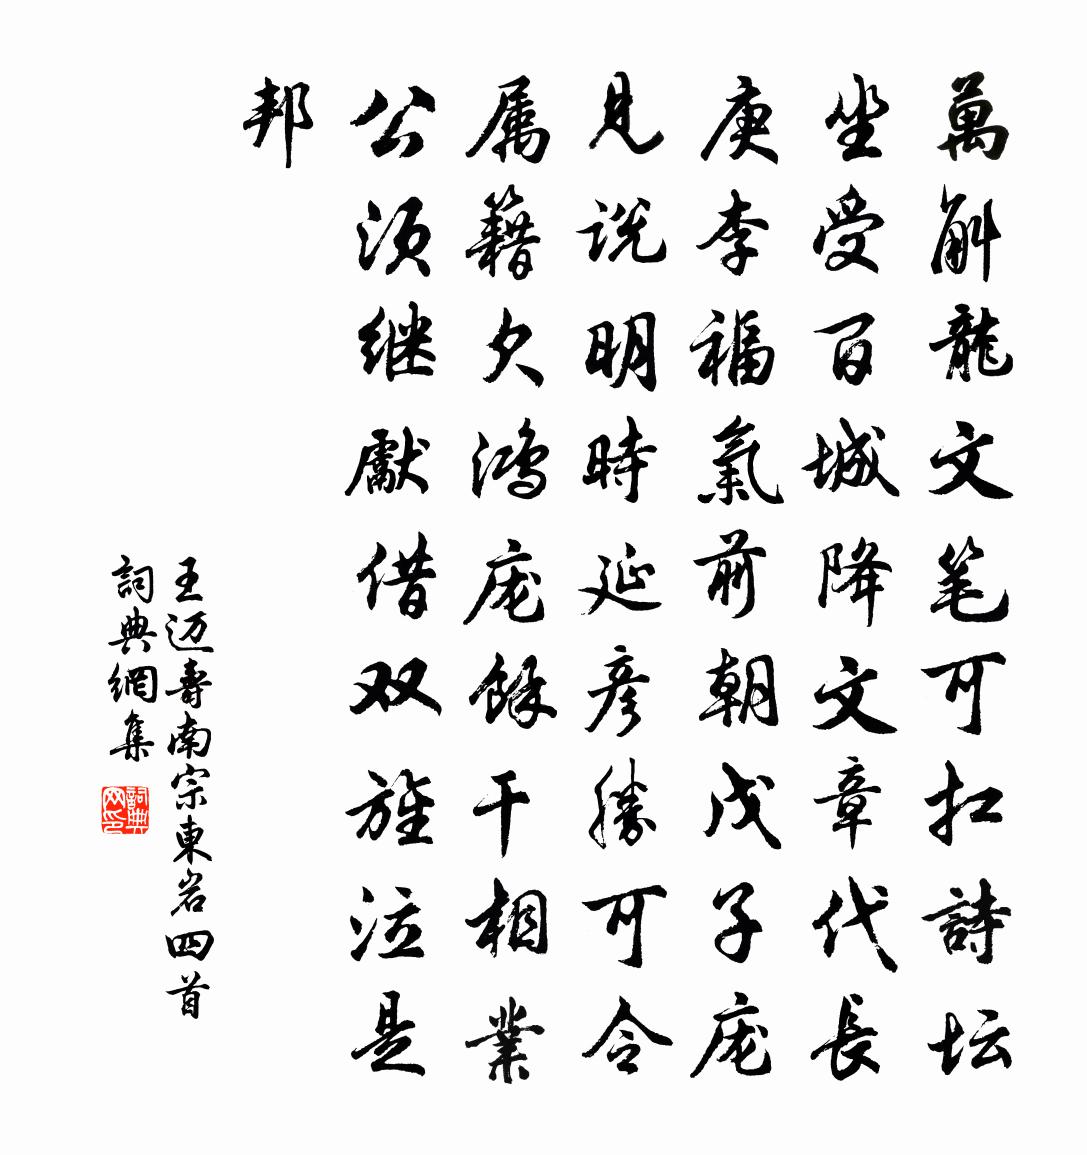 萬斛龍文笔可扛詩坛
坐受百城降文章代長
庚李福氣前朝戊子庞
見说明時延彦勝可令
属籍欠鸿庞餘干相業
公须继獻借双旌涖是
邦
王迈壽南宗東岩四首
詞典網集
詞典网印